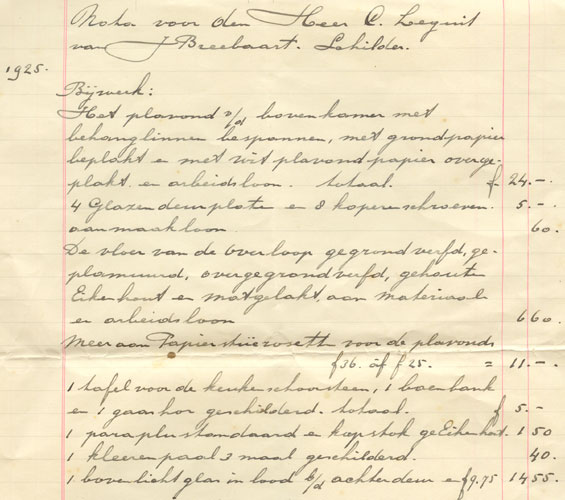 Nota voor den Heer C. Leguit
van J Breebaart. Schilder.
1925.
Bijwerk:
Het plavond v/d bovenkamer met
behanglinnen bespannen, met grondpapier
beplakt en met wit plavondpapier overge-
plakt en arbeidsloon. totaal. f 24.-
4 Glazen deurplate en 8 kopere schroeven. 5.-
aanmaakloon. 60.
De vloer van de overloop gegrondverfd, ge-
plamuurd, overgegrondverfd, gehoute
Eikenhout en matgelakt, aan materiaal
en arbeidsloon 6 60.
Meer aan Papierstucrosette voor de plavonds
f 36. áf f 25. = 11.-
1 tafel voor de keuke schoorsteen, 1 boenbank
en 1 gaashor geschilderd. totaal. f 5.-
1 paraplustandaard en kapstok geEikenhout. 1 50
1 kleerenpaal 3 maal geschilderd. 40.
1 bovenlicht glas in lood b/d achterdeur e f 9.75 14 55.